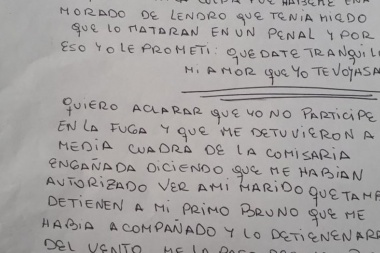 MORADO DE LENDRO QUE TENIA MIEDO
QUE LO MATARAN EN UN PENAL Y POR
ESO YO LE PROMETI: QUEDATE TRANQUIL
MI AMOR QUE YO TE VOY A SA
QUIERO ACLARAR QUE YO NO PARTICIPE
EN LA FUGA Y QUE ME DETUVIERON A
MEDIA CUADRA DE LA COMISARIA
ENGAÑADA DICIENDO QUE ME HABIAN
AUTORIZADO VER A MI MARIDO QUE TAMB
DETIENEN A MI PRIMO BRUNO QUE ME
HABIA ACOMPAÑADO Y LO DETIENEN ARR
DEL VENTO